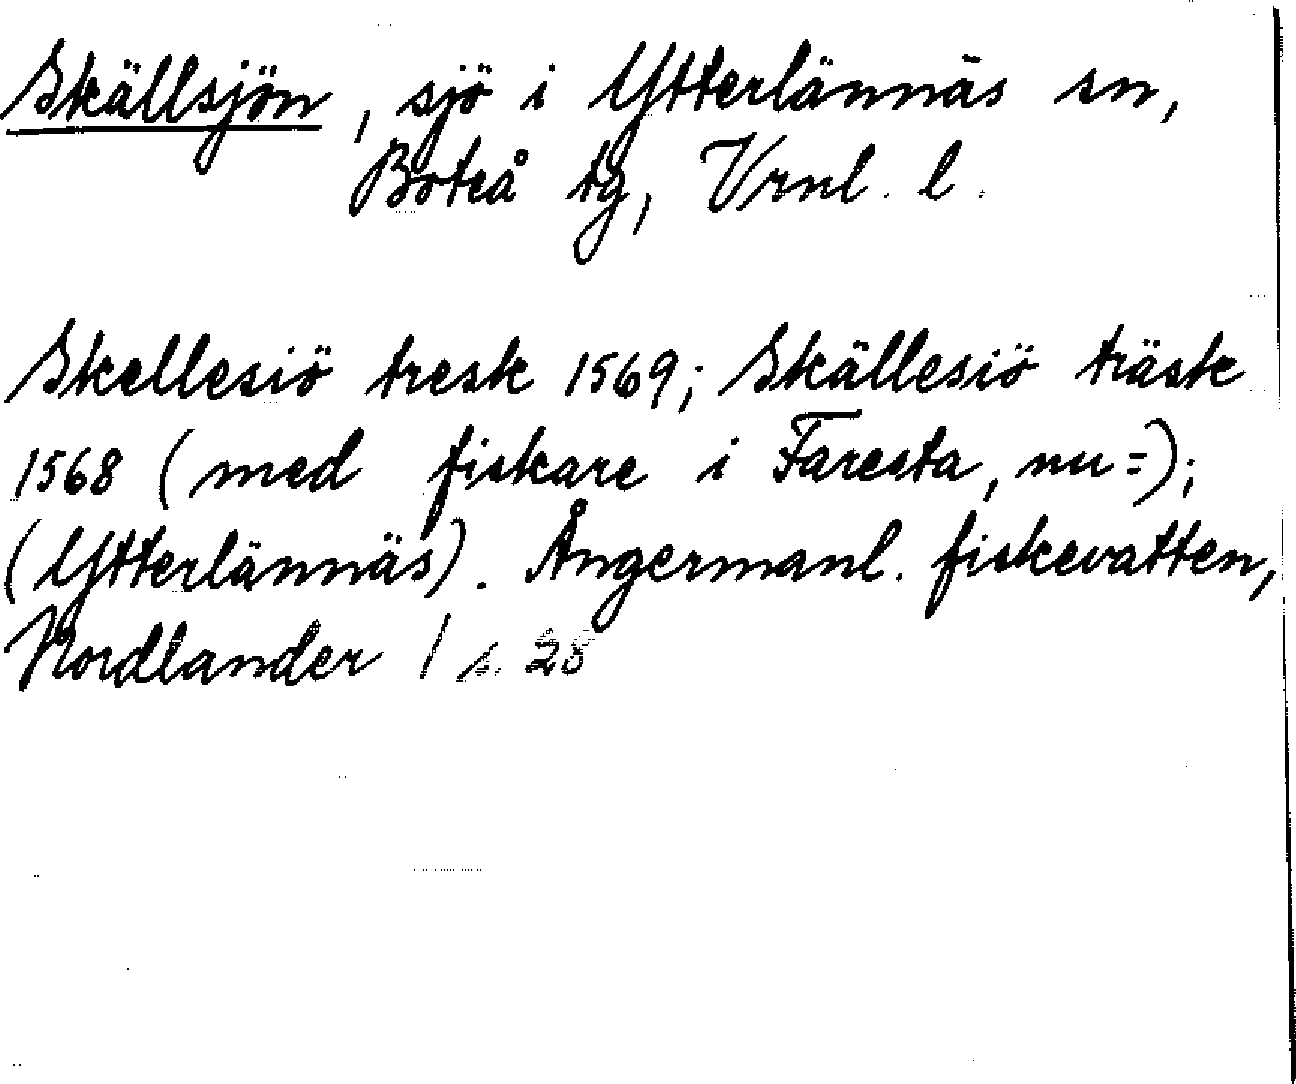 Skällsjön, sjö i Ytterlännäs sn,
Boteå tg, Vrnl. l.
Skellesiö tresk 1569; Skällesiö träsk
1568 (med fiskare i Faresta, nu =);
(Ytterlännäs). Ångermanl. fiskevatten,
Nordlander / s. 28